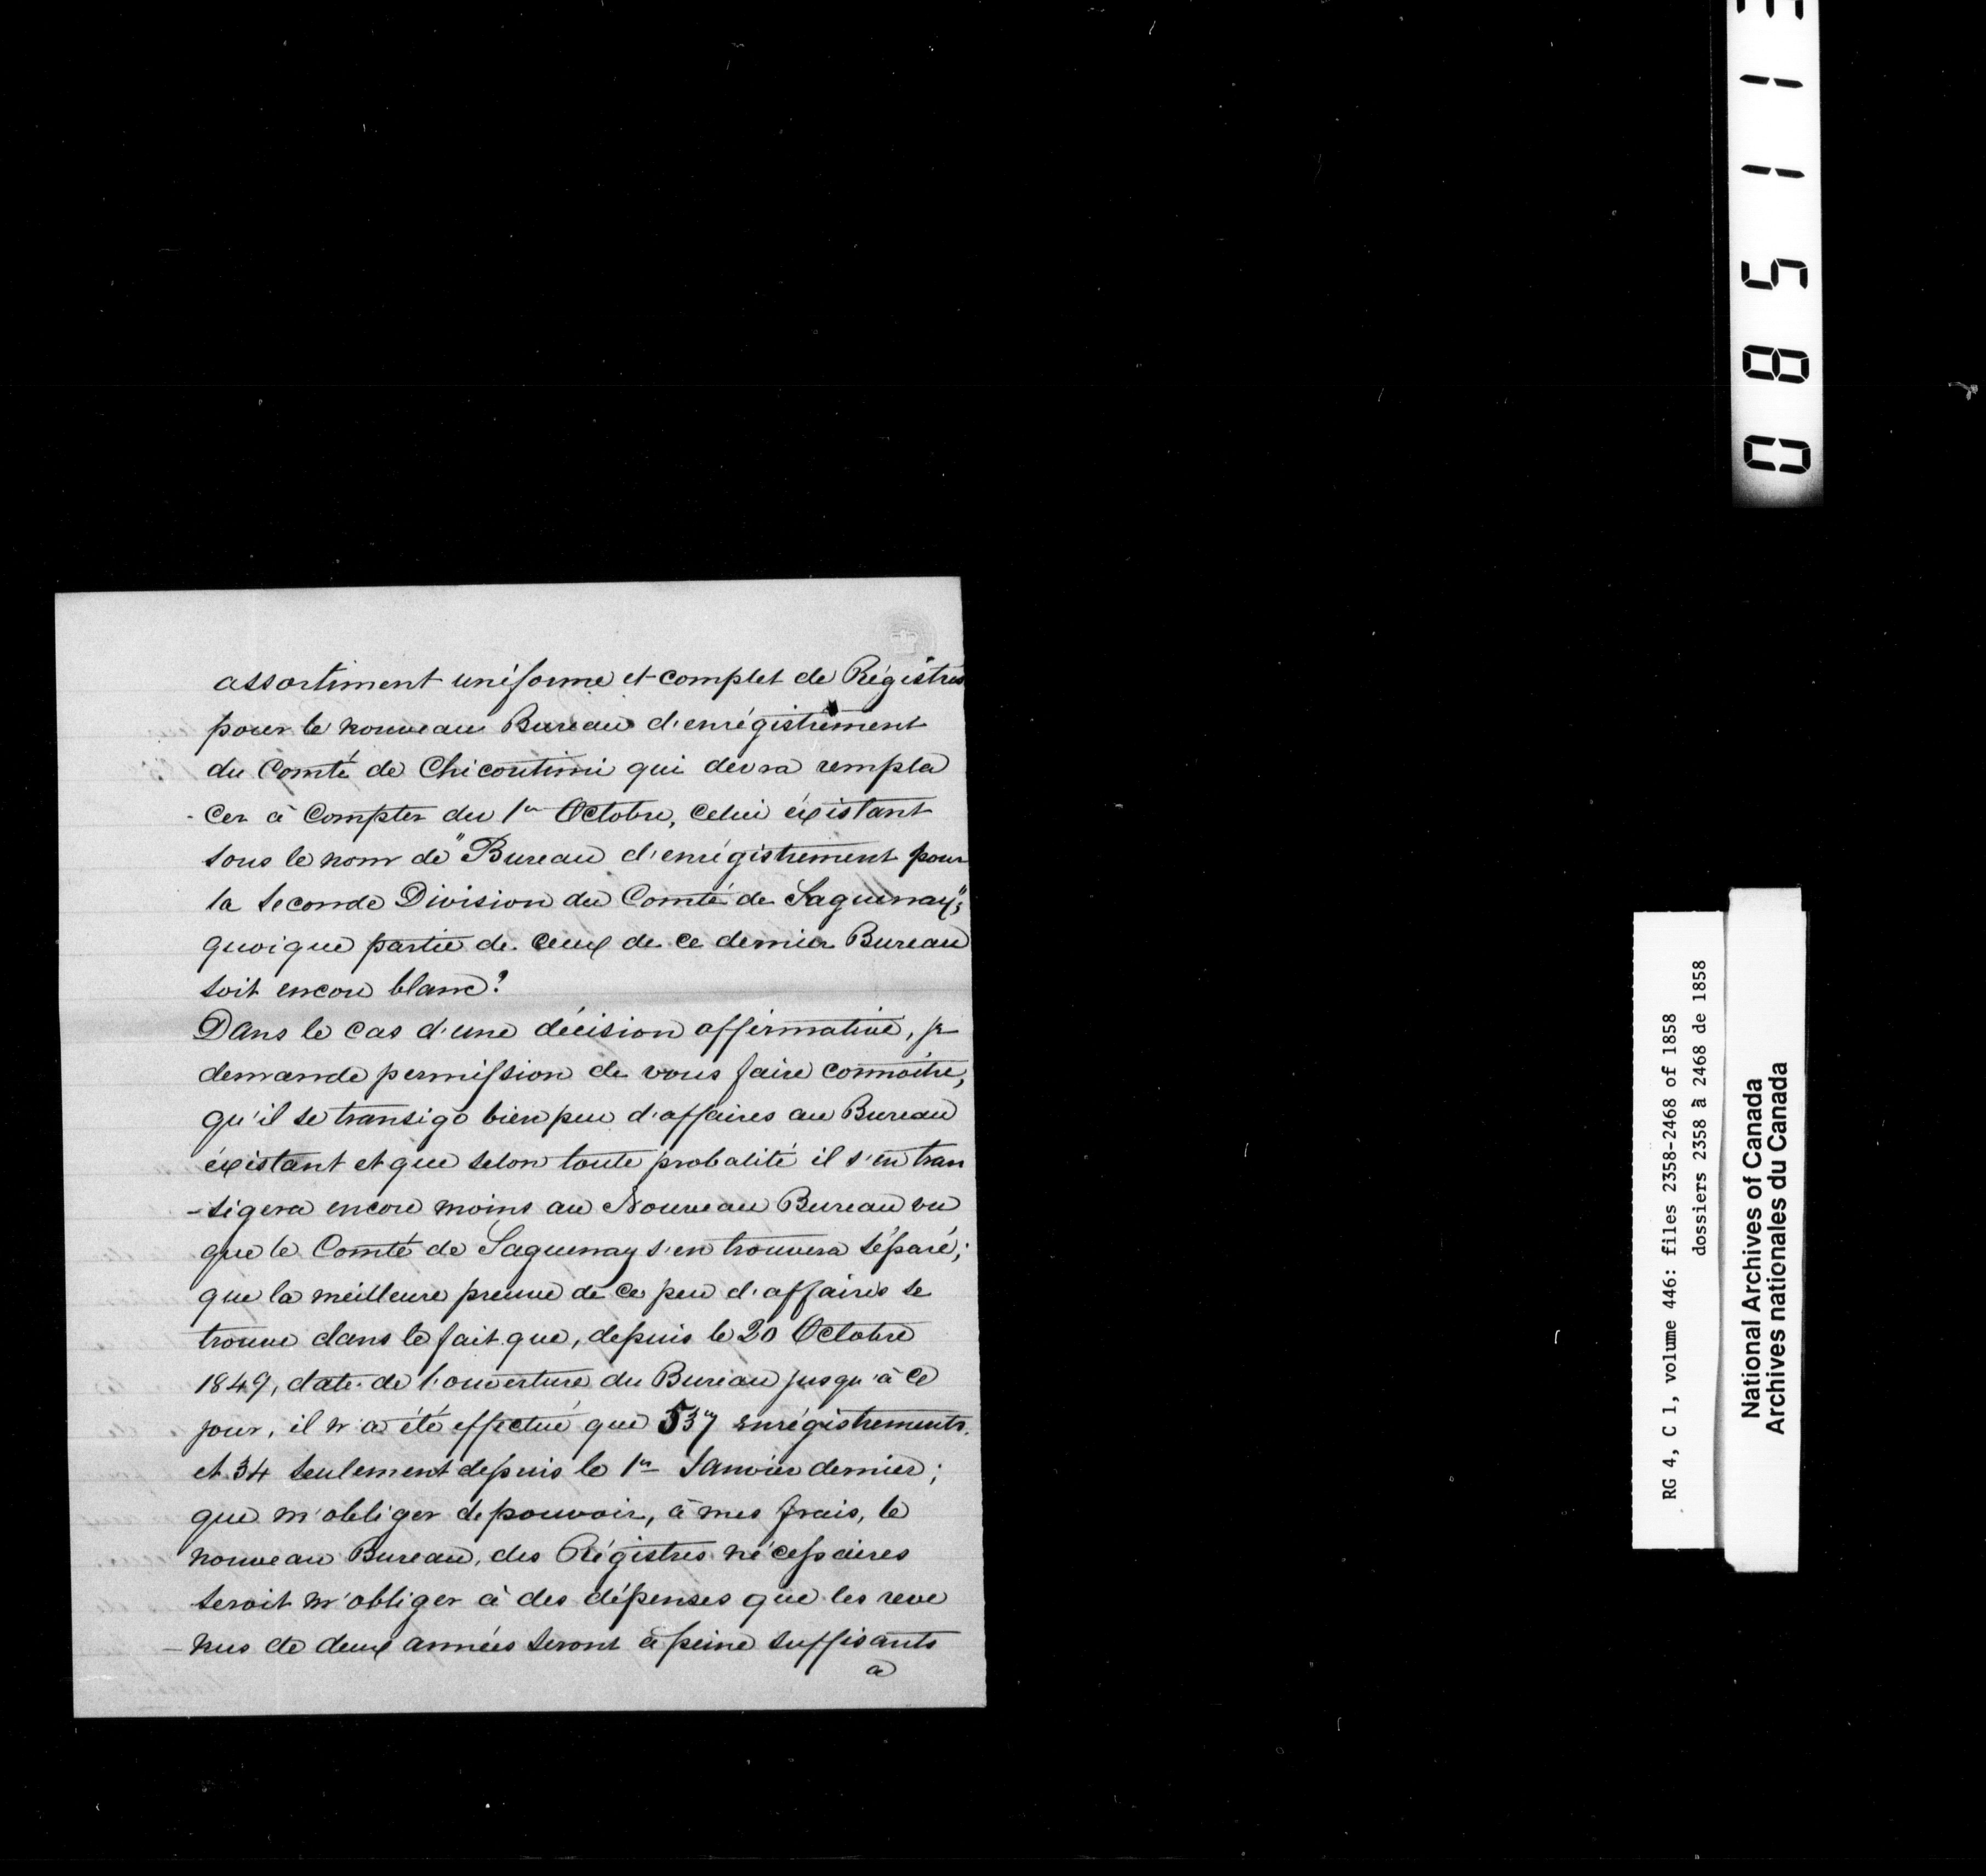 assortiment uniforme et complet de Régistres
pour le nouveau Bureau d'enrégistrement
du Comté de Chicoutimi qui devra rempla
-cer à compter du 1er Octobre, celui éxistant
sous le nom de "Bureau d'enrégistrement pour
la seconde Division du Comté de Saguenay";
quoique partie de ceux de ce dernier Bureau
soit encore blanc?
Dans le cas d'une décision affirmative, je
demande permission de vous faire connoître,
qu'il se transige bien peu d'affaires au Bureau
éxistant et que selon toute probalité il s'en tran
-sigera encore moins au Nouveau Bureau vu
que le Comté de Saguenay s'en trouvera séparé;
que la meilleure preuve de ce peu d'affaires se
trouve dans le fait que, depuis le 20 Octobre
1849, date de l'ouverture du Bureau jusqu'à ce
jour, il n'a été effectué que 537 enrégistrements.
et 34 seulement depuis le 1er Janvier dernier;
que m'obliger de pouvoir, à mes frais, le
nouveau Bureau, des Régistres nécessaires
seroit m'obliger à des dépenses que les reve
-nus de deux années seront à peine suffisants
a
085113
RG 4, C 1, volume 446: files 2358-2468 of 1858
dossiers 2358 à 2468 de 1858
National Archives of Canada
Archives nationales du Canada